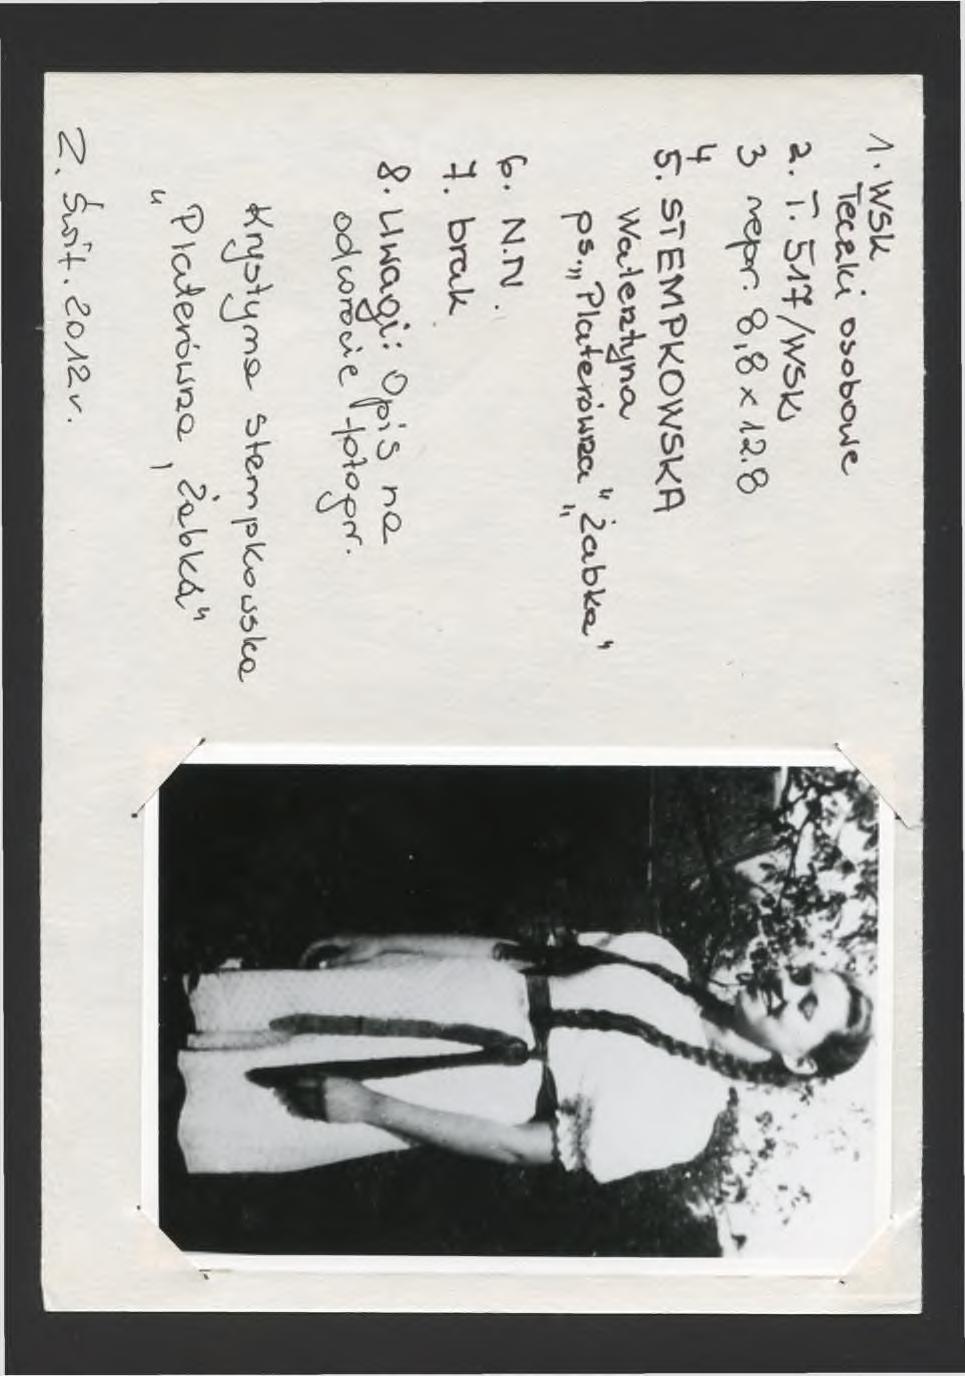 1. WSK
Teczki osobowe
2. T. 517/WSK
3 repr. 8,8 x 12.8
4
5. STEMPKOWSKA
Walentyna
ps. „Platerówna" „Żabka"
6. N.N.
7. brak
8. Uwagi: Opis na
odwrocie fotogr.
Krystyna Stempkowska
„Platerówna, Żabka"
Z. Świt. 2012r.